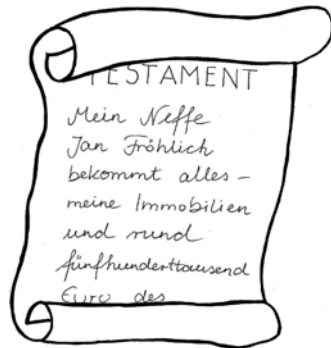 TESTAMENT
Mein Neffe
Jan Fröhlich
bekommt alles –
meine Immobilien
und rund
fünfhunderttausend
Euro des